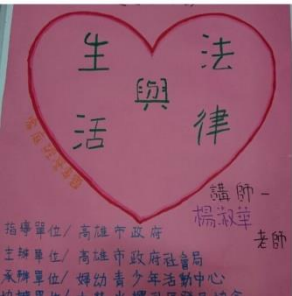 生 法
與
活 律
講師－
楊淑華
老師
指導單位/高雄市政府
主辦單位/高雄市政府社會局
承辦單位/婦幼青少年活動中心